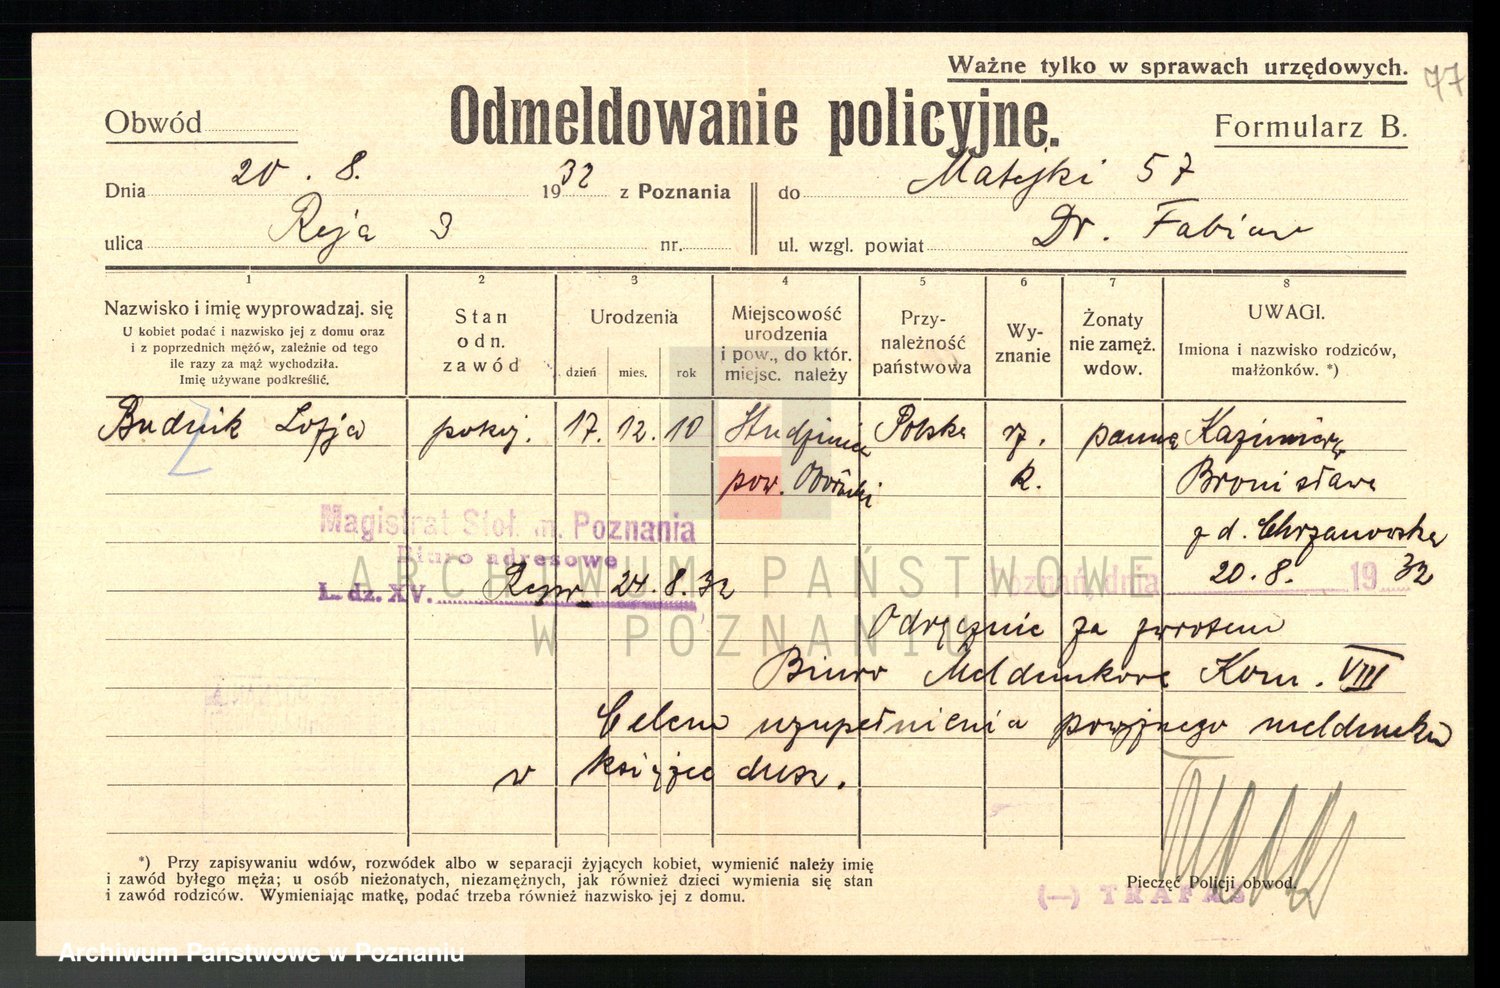 Ważne tylko w sprawach urzędowych.
77
Obwód
Odmeldowanie policyjne.
Formularz B.
Dnia 20. 8. 1932 z Poznania
do Matejki 57
ulica Reja 3 nr.
ul. wzgl. powiat Dr. Fabian
1 2 3 4 5 6 7 8
Nazwisko i imię wyprowadzaj. się
U kobiet podać i nazwisko jej z domu oraz
i z poprzednich mężów, zależnie od tego
ile razy za mąż wychodziła.
Imię używane podkreślić.
Stan
odn.
zawód
Urodzenia
dzień mies. rok
Miejscowość
urodzenia
i pow., do któr.
miejsc. należy
Przy-
należność
państwowa
Wy-
znanie
Żonaty
nie zamęż.
wdow.
UWAGI.
Imiona i nazwisko rodziców,
małżonków. *)
Budnik Zofja pokoj. 17. 12. 10 Polska rz. panna Kazimierz
pow. k. Bronisława
z d. Chrzanowska
Magistrat Stoł. m. Poznania
Biuro adresowe
L. dz. XV. 24. 8. 32
Poznań, dnia 20. 8. 1932
ARCHIWUM PAŃSTWOWE
W POZNANIU
Odręcznie za zwrotem
Biuro Meldunkowe Kom. VIII
Celem uzupełnienia powyższego meldunku
w księżce dusz.
*) Przy zapisywaniu wdów, rozwódek albo w separacji żyjących kobiet, wymienić należy imię
i zawód byłego męża; u osób nieżonatych, niezamężnych, jak również dzieci wymienia się stan
i zawód rodziców. Wymieniając matkę, podać trzeba również nazwisko jej z domu.
Pieczęć Policji obwod.
(—) TRAFAS
Archiwum Państwowe w Poznaniu